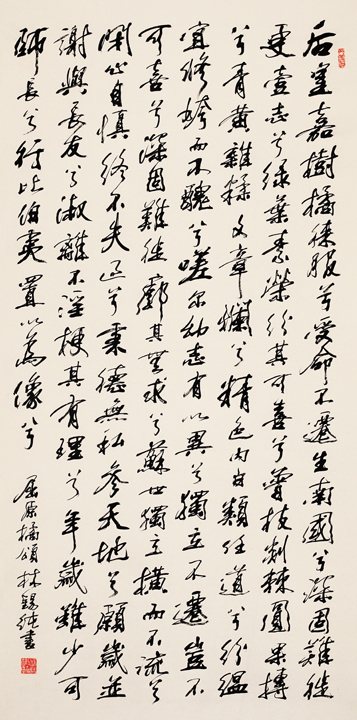 后皇嘉樹橘徠服兮受命不遷生南國兮深固難徙
更壹志兮綠葉素榮紛其可喜兮曾枝剡棘圓果摶
兮青黃雜糅文章爛兮精色內白類任道兮紛縕
宜修姱而不醜兮嗟尔幼志有以異兮獨立不遷豈不
可喜兮深固難徙廓其無求兮蘇世獨立橫而不流兮
閉心自慎終不失過兮秉德無私參天地兮願歲並
謝與長友兮淑離不淫梗其有理兮年歲雖少可
師長兮行比伯夷置以為像兮
屈原橘頌 林錫純書